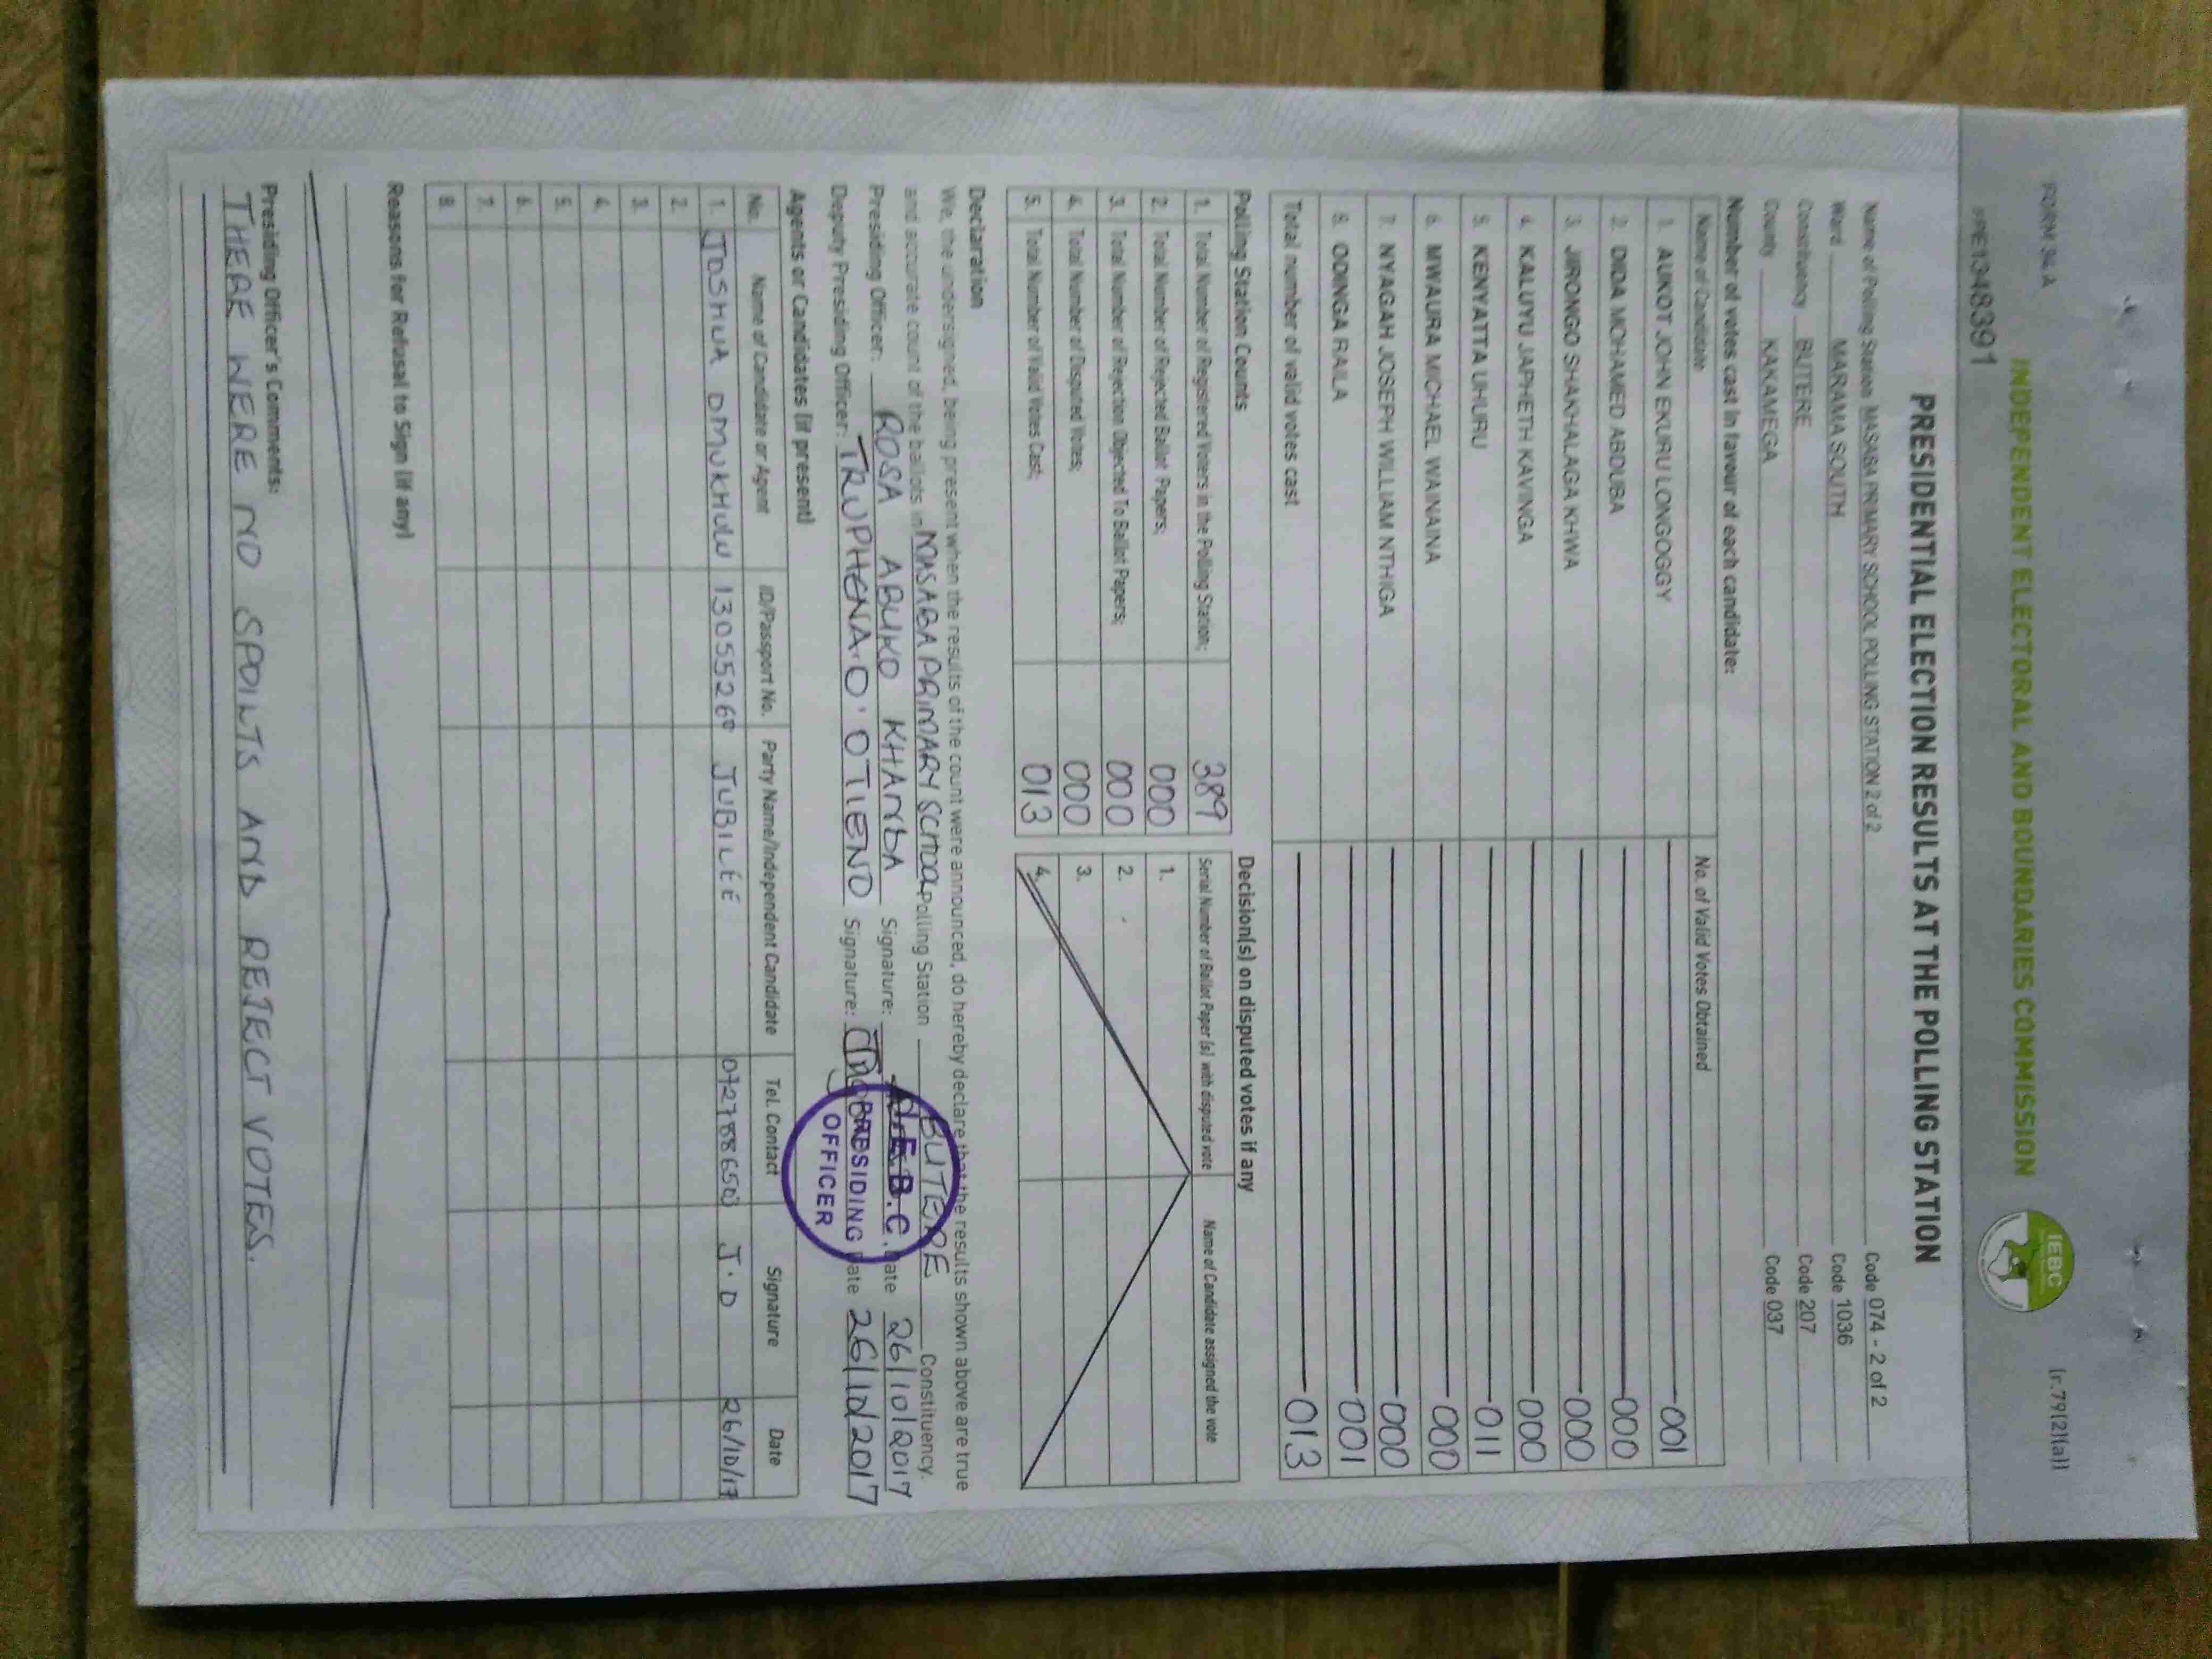 FORM 34A
(r.79(2)(a))
INDEPENDENT ELECTORAL AND BOUNDARIES COMMISSION
IEBC
PPE1348391
PRESIDENTIAL ELECTION RESULTS AT THE POLLING STATION
Name of Polling Station MASABA PRIMARY SCHOOL POLLING STATION 2 of 2 Code 074 - 2 of 2
Ward MARAMA SOUTH Code 1036
Constituency BUTERE Code 207
County KAKAMEGA Code 037
Number of votes cast in favour of each candidate:
Name of Candidate No. of Valid Votes Obtained
1. AUKOT JOHN EKURU LONGOGGY 001
2. DIDA MOHAMED ABDUBA 000
3. JIRONGO SHAKHALAGA KHWA 000
4. KALUYU JAPHETH KAVINGA 000
5. KENYATTA UHURU 011
6. MWAURA MICHAEL WAINAINA 000
7. NYAGAH JOSEPH WILLIAM NTHIGA 000
8. ODINGA RAILA 001
Total number of valid votes cast 013
Polling Station Counts
1. Total Number of Registered Voters in the Polling Station; 389
2. Total Number of Rejected Ballot Papers; 000
3. Total Number of Rejection Objected To Ballot Papers; 000
4. Total Number of Disputed Votes; 000
5. Total Number of Valid Votes Cast; 013
Decision(s) on disputed votes if any
Serial Number of Ballot Paper (s) with disputed vote Name of Candidate assigned the vote
1.
2.
3.
4.
Declaration
We, the undersigned, being present when the results of the count were announced, do hereby declare that the results shown above are true
and accurate count of the ballots in MASABA PRIMARY SCHOOL Polling Station BUTERE Constituency.
Presiding Officer: ROSA ABUKO KHAMBA Signature: Date 26/10/2017
Deputy Presiding Officer: TRUPHENA.O' OTIENO Signature: Date 26/10/2017
I.E.B.C.
PRESIDING
OFFICER
Agents or Candidates (if present)
No. Name of Candidate or Agent ID/Passport No. Party Name/Independent Candidate Tel. Contact Signature Date
1. JOSHUA OMUKHULU 13055260 JUBILEE 0727886503 J.O 26/10/17
2.
3.
4.
5.
6.
7.
8.
Reasons for Refusal to Sign (if any)
Presiding Officer's Comments:
THERE WERE NO SPOILTS AND REJECT VOTES.